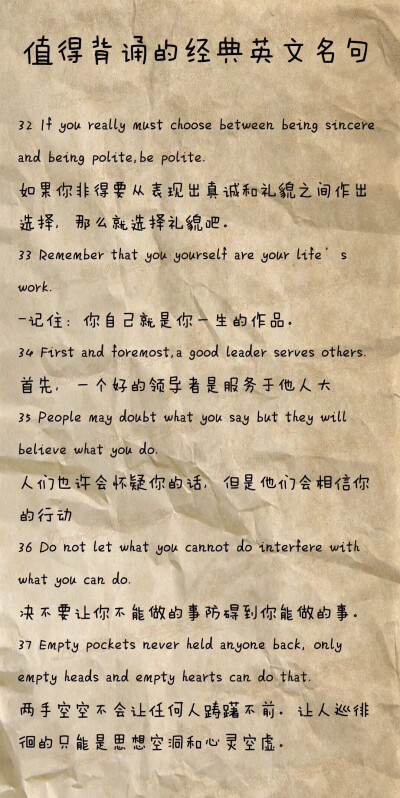 值得背诵的经典英文名句
32 If you really must choose between being sincere
and being polite,be polite.
如果你非得要从表现出真诚和礼貌之间作出
选择，那么就选择礼貌吧。
33 Remember that you yourself are your life's
work.
-记住：你自己就是你一生的作品。
34 First and foremost,a good leader serves others.
首先，一个好的领导者是服务于他人大
35 People may doubt what you say but they will
believe what you do.
人们也许会怀疑你的话，但是他们会相信你
的行动
36 Do not let what you cannot do interfere with
what you can do.
决不要让你不能做的事防碍到你能做的事。
37 Empty pockets never held anyone back, only
empty heads and empty hearts can do that.
两手空空不会让任何人踌躇不前。让人巡徘
徊的只能是思想空洞和心灵空虚。